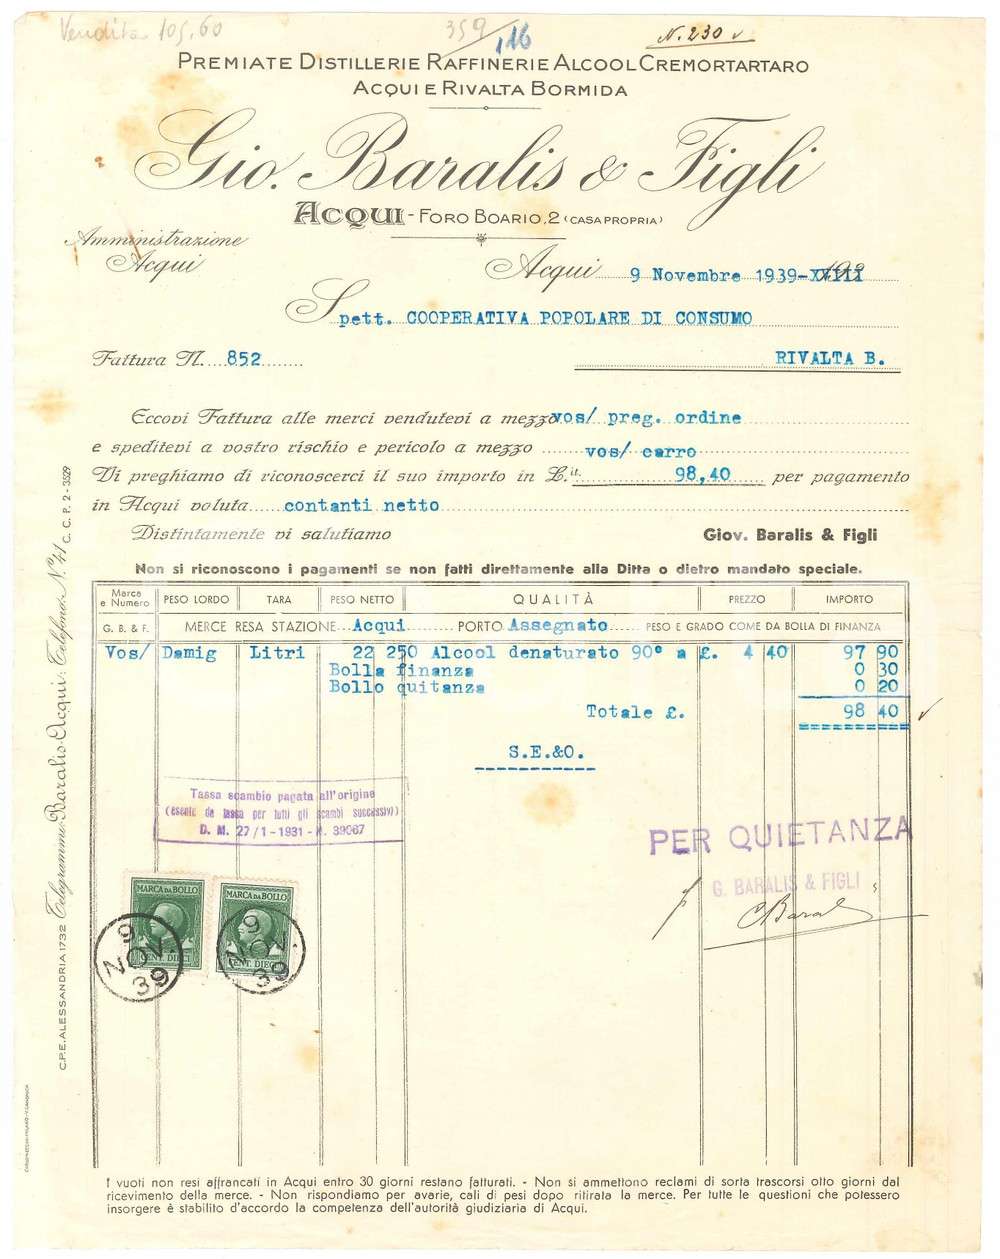 Vendita 105,60
359
,116
N. 230 v
PREMIATE DISTILLERIE RAFFINERIE ALCOOL CREMORTARTARO
ACQUI E RIVALTA BORMIDA
Gio. Baralis & Figli
ACQUI - FORO BOARIO, 2 (CASA PROPRIA)
Amministrazione
Acqui
Acqui 9 Novembre 1939-XVIII
Spett. COOPERATIVA POPOLARE DI CONSUMO
Fattura N. 852 RIVALTA B.
Eccovi Fattura alle merci vendutevi a mezzo vos/ preg. ordine
e speditevi a vostro rischio e pericolo a mezzo vos/ carro
Vi preghiamo di riconoscerci il suo importo in L.it. 98,40 per pagamento
in Acqui valuta contanti netto
Distintamente vi salutiamo Giov. Baralis & Figli
Non si riconoscono i pagamenti se non fatti direttamente alla Ditta o dietro mandato speciale.
Marca e Numero PESO LORDO TARA PESO NETTO QUALITÀ PREZZO IMPORTO
G. B. & F. MERCE RESA STAZIONE Acqui PORTO Assegnato PESO E GRADO COME DA BOLLA DI FINANZA
Vos/ Damig Litri 22 250 Alcool denaturato 90° a £. 4 40 97 90
Bolla finanza 0 30
Bollo quitanza 0 20
Totale £. 98 40
S.E.&O.
Tassa scambio pagata all'origine
(esente da tassa per tutti gli scambi successivi)
D. M. 27/1-1931 - N. 39067
PER QUIETANZA
G. BARALIS & FIGLI
MARCA DA BOLLO MARCA DA BOLLO
CENT. DIECI CENT. DIECI
9 NOV. 39 9 NOV. 39
I vuoti non resi affrancati in Acqui entro 30 giorni restano fatturati. - Non si ammettono reclami di sorta trascorsi otto giorni dal
ricevimento della merce. - Non rispondiamo per avarie, cali di pesi dopo ritirata la merce. Per tutte le questioni che potessero
insorgere è stabilito d'accordo la competenza dell'autorità giudiziaria di Acqui.
C.P.E. ALESSANDRIA 1732 Telegrammi: Baralis-Acqui. Telefono. N.° 41 C. C. P. 2 - 3529